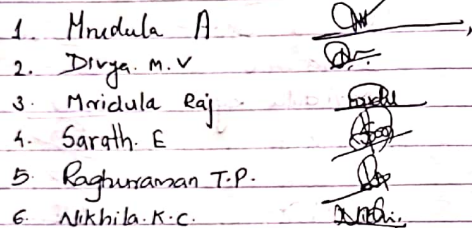 1. Mrudula A
2. Divya. M.V
3. Mridula Raj
4. Sarath. E
5. Raghuraman T.P.
6. Nikhila. K.C.